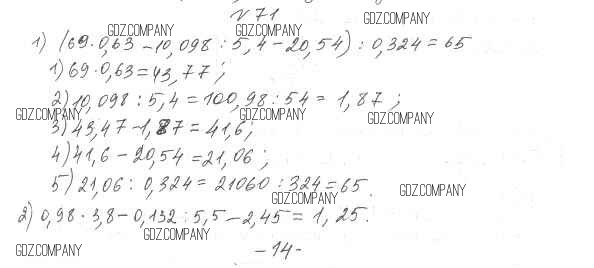 № 71
GDZ.COMPANY
GDZ.COMPANY GDZ.COMPANY
1) (69·0,63 – 10,098 : 5,4 – 20,54) : 0,324 = 65
1) 69·0,63 = 43,77;
2) 10,098 : 5,4 = 100,98 : 54 = 1,87;
GDZ.COMPANY GDZ.COMPANY GDZ.COMPANY
3) 43,47 – 1,87 = 41,6;
4) 41,6 – 20,54 = 21,06;
5) 21,06 : 0,324 = 21060 : 324 = 65.
GDZ.COMPANY GDZ.COMPANY
2) 0,98·3,8 – 0,132 : 5,5 – 2,45 = 1,25.
GDZ.COMPANY
GDZ.COMPANY
– 14 –